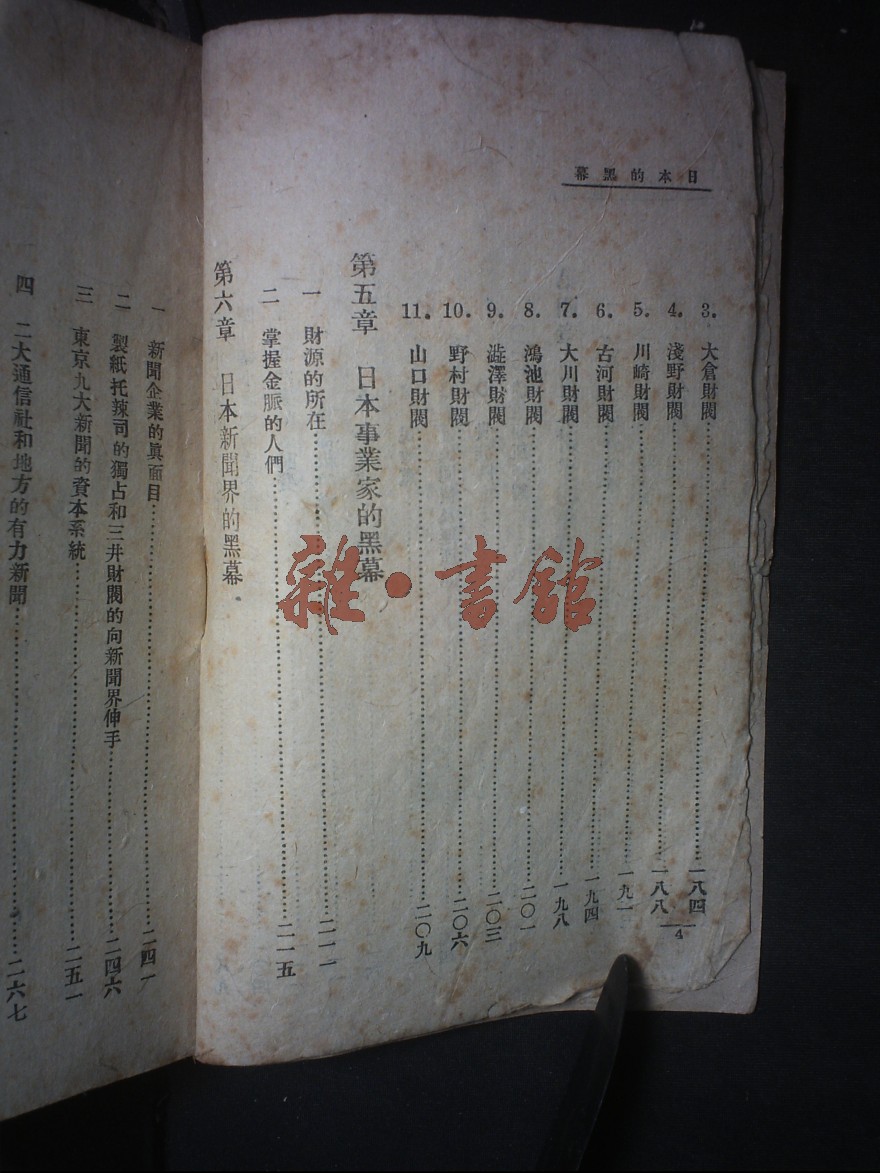 日本的黑幕
3. 大倉財閥……一八四
4. 淺野財閥……一八八
5. 川崎財閥……一九一
6. 古河財閥……一九四
7. 大川財閥……一九八
8. 鴻池財閥……二〇一
9. 澁澤財閥……二〇三
10. 野村財閥……二〇六
11. 山口財閥……二〇九
第五章 日本事業家的黑幕
一 財源的所在……二一一
二 掌握金脈的人們……二一五
第六章 日本新聞界的黑幕
4
一 新聞企業的眞面目……二四一
二 製紙托辣司的獨占和三井財閥的向新聞界伸手……二四六
三 東京九大新聞的資本系統……二五一
四 二大通信社和地方的有力新聞……二六七
雜·書館